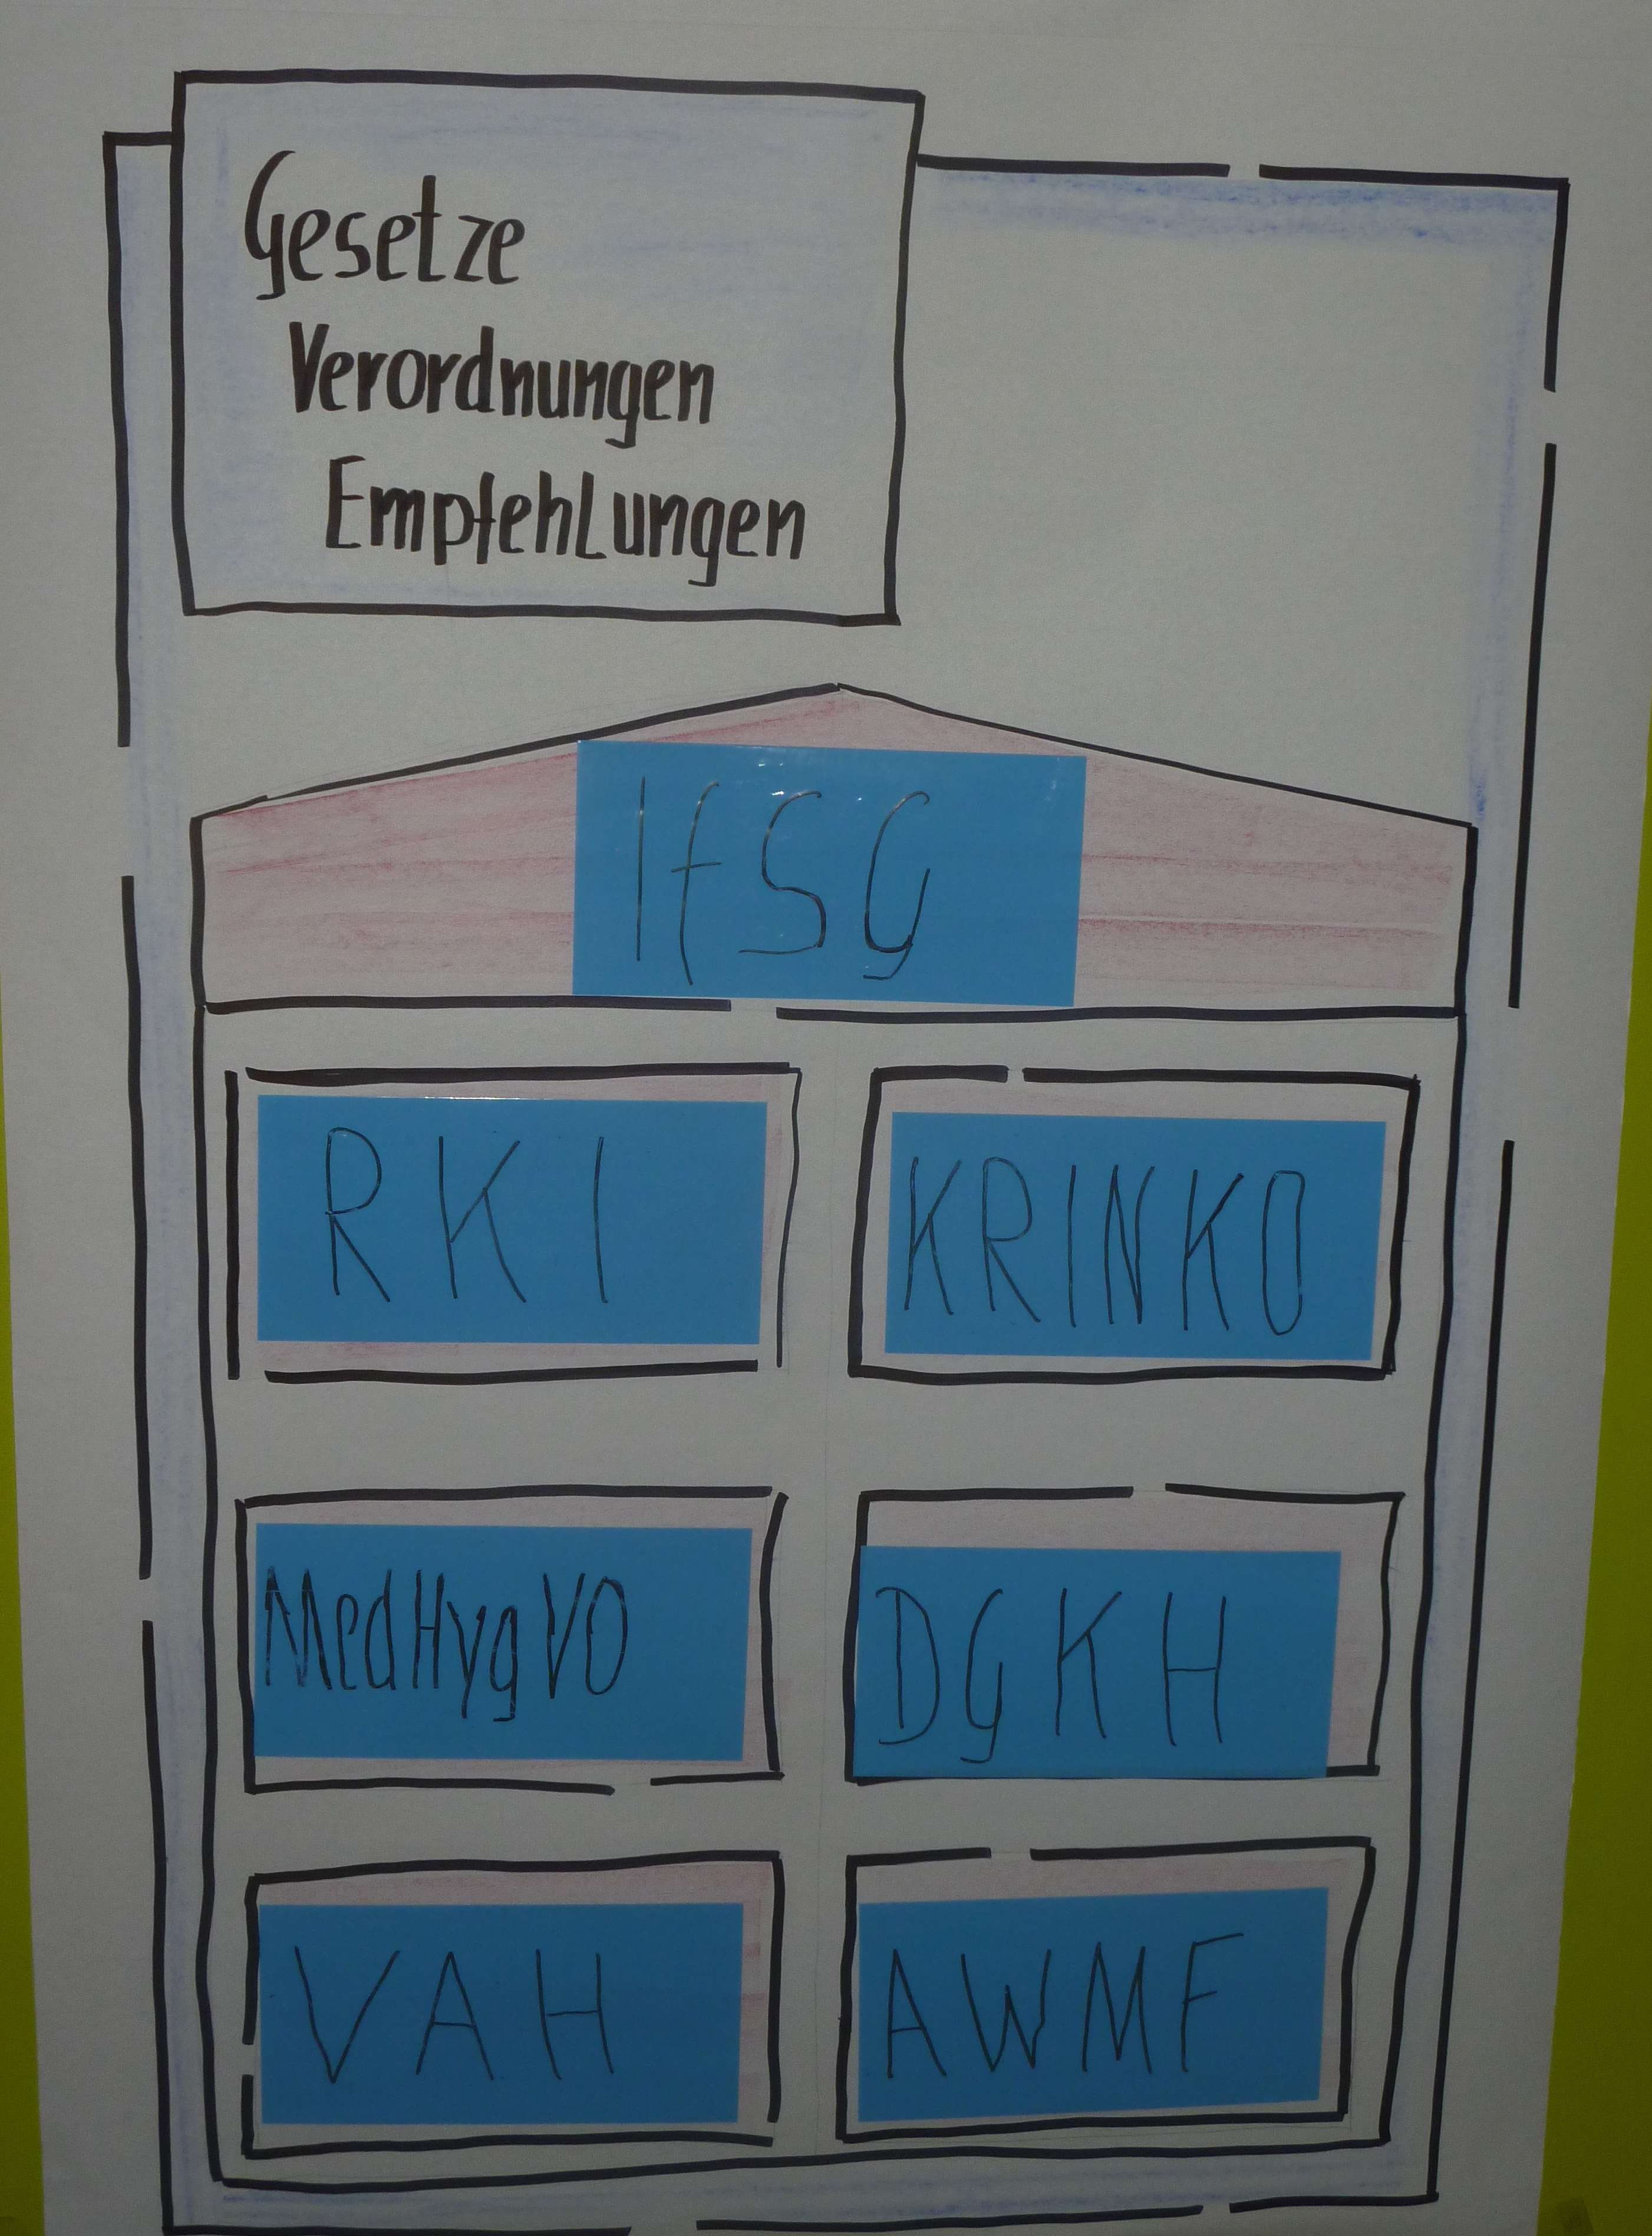 Gesetze
Verordnungen
Empfehlungen
IfSG
RKI
KRINKO
MedHygVO
DGKH
VAH
AWMF